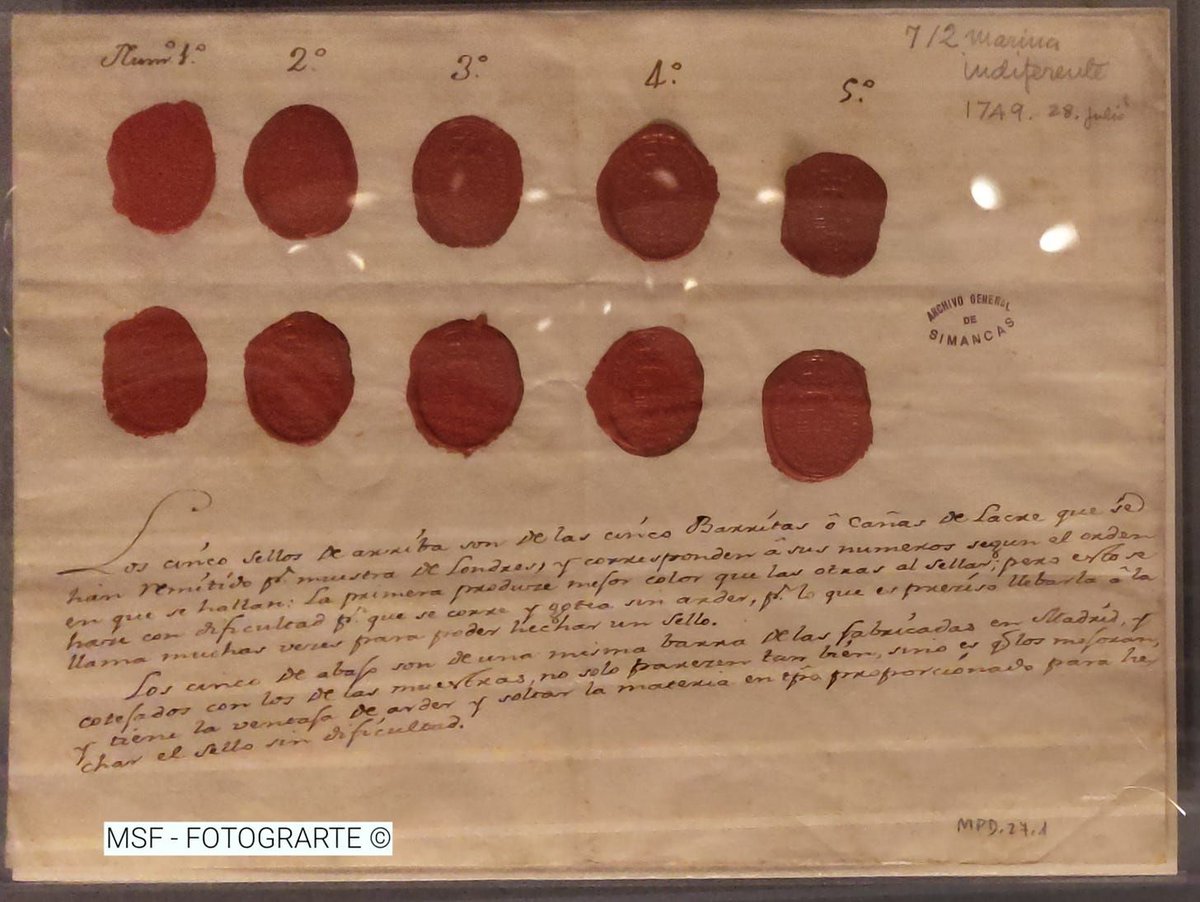 Num.º 1.º 2.º 3.º 4.º 5.º
712 Marina
indiferente
1749. 28. Julio
ARCHIVO GENERAL
DE
SIMANCAS
Los cinco sellos de arriba son de las cinco Barritas ô Cañas de Lacre que se
han remitido p.r muestra de Londres, y corresponden â sus numeros segun el orden
en que se hallan: La primera produze mejor color que las otras al sellar; pero esto se
hace con dificultad p.r que se corre y gotea sin arder, p.r lo que es preciso llebarla â la
llama muchas veces para poder hechar un sello.
Los cinco de abajo son de una misma barra de las fabricadas en Madrid, y
cotejados con los de las muestras, no solo parezen tan bien, sino es q.e los mejoran,
y tiene la ventaja de arder y soltar la materia en proporcionado para he
char el sello sin dificultad.
MSF - FOTOGRARTE ©
MPD.27.1